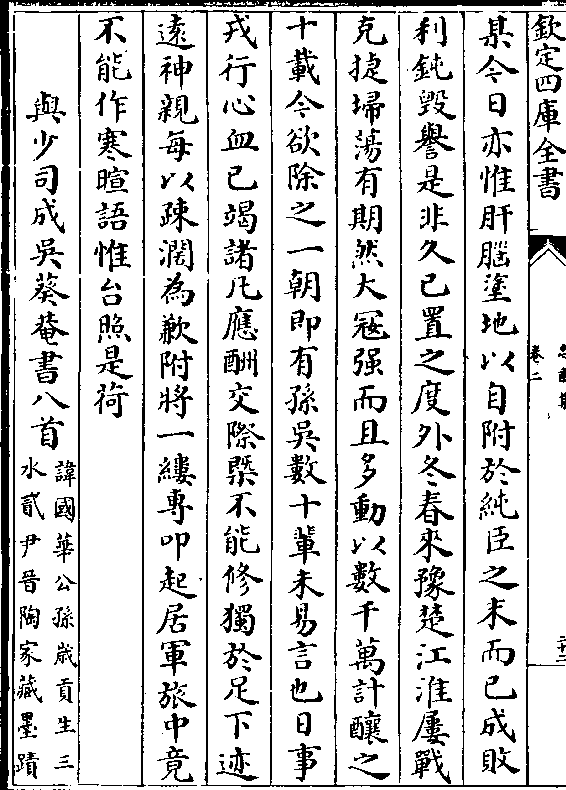 欽定四庫全書
卷二
某今日亦惟肝腦塗地以自附於純臣之末而已成敗
利鈍毀譽是非久已置之度外冬春來豫楚江淮屢戰
克捷埽蕩有期然大冦强而且多動以數千萬計釀之
十載今欲除之一朝即有孫吳數十輩未易言也日事
戎行心血已竭諸凡應酬交際槩不能修獨於足下迹
遠神親每以疎濶為歉附將一縷專叩起居軍旅中竟
不能作寒暄語惟台照是荷
與少司成吳葵菴書八首
諱國華公孫歲貢生三
水貳尹晉陶家藏墨蹟